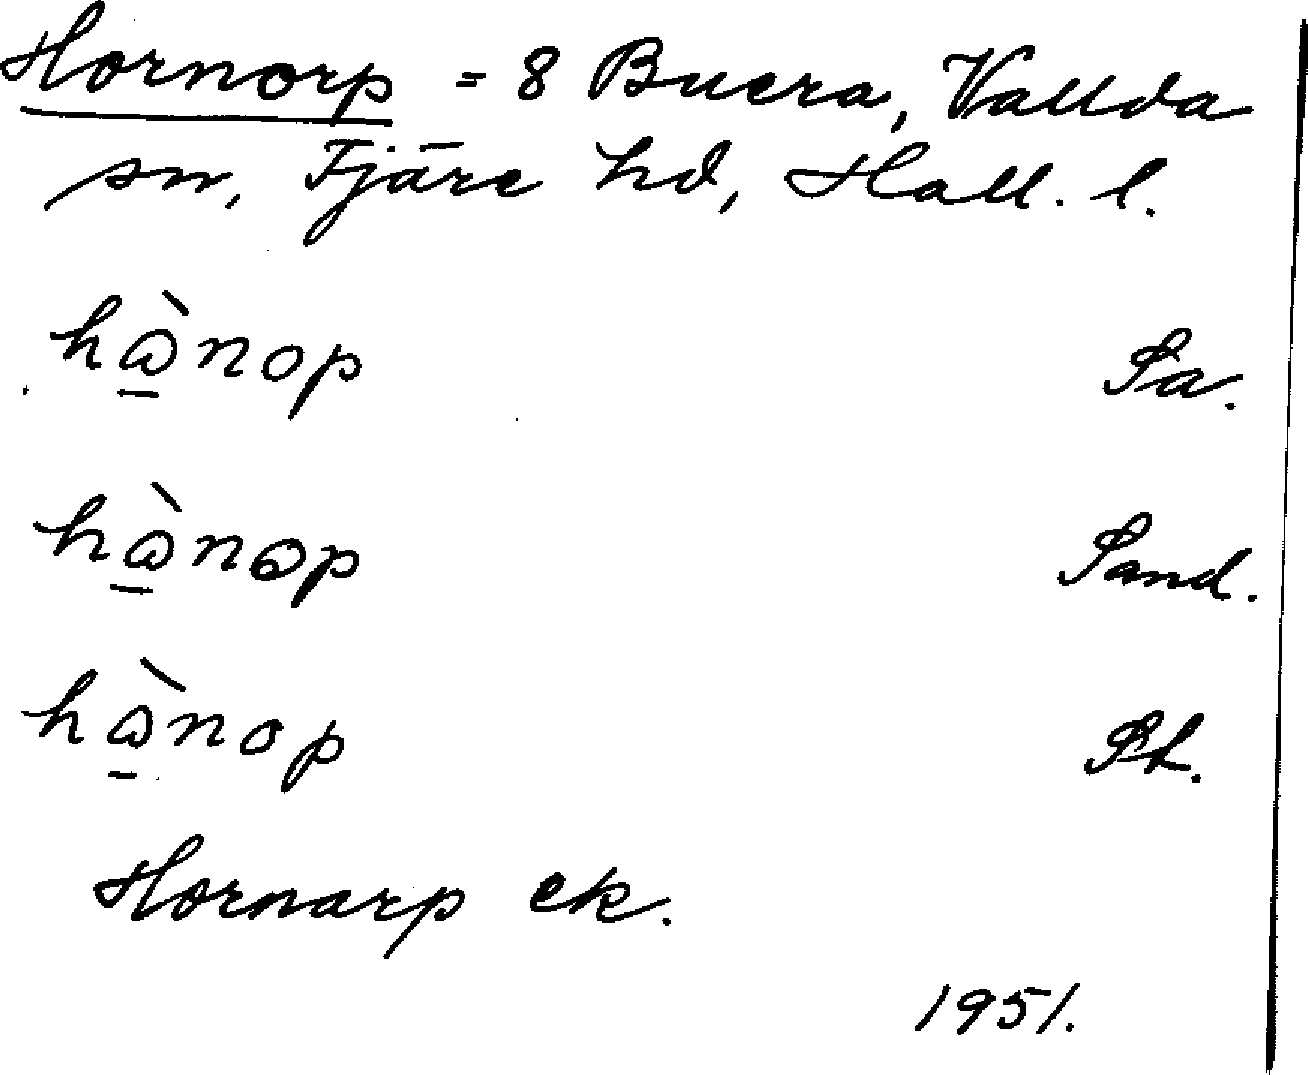 Hornorp = 8 Buera, Vallda
sn, Fjäre hd, Hall. l.
hὼ̱nop Sa.
hὼ̱nɷp Sand.
hὼ̱nop St.
Hornarp ek.
1951.